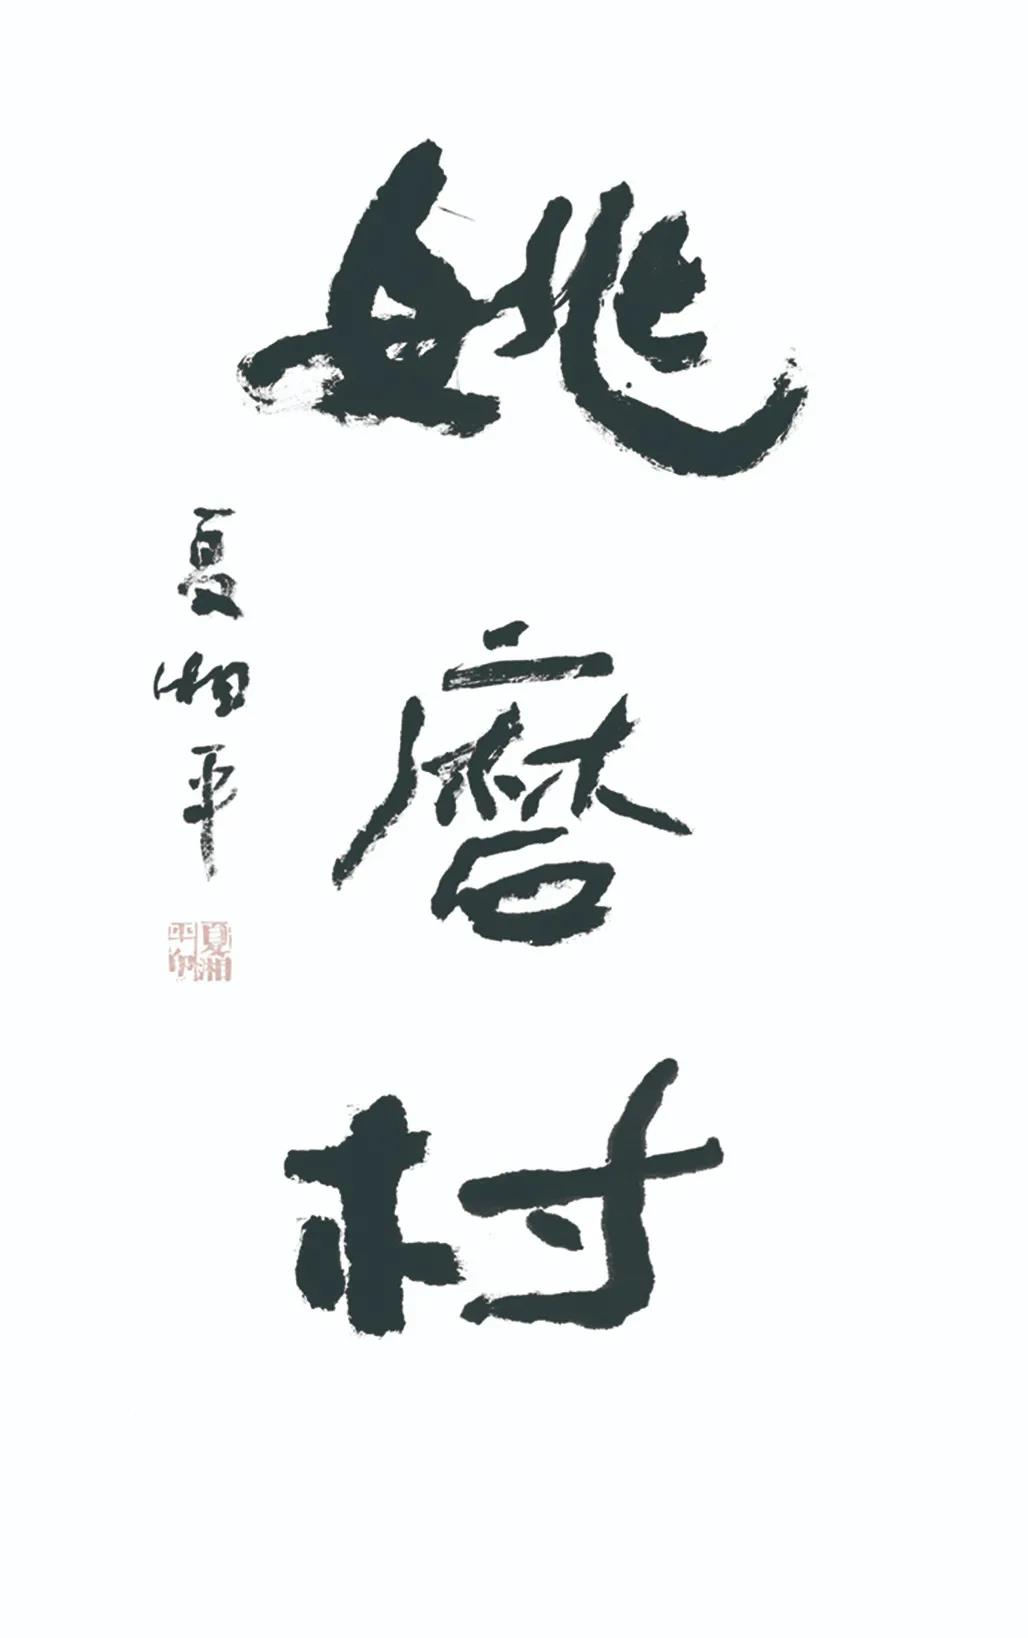 姚磨村
夏湘平
夏湘平印